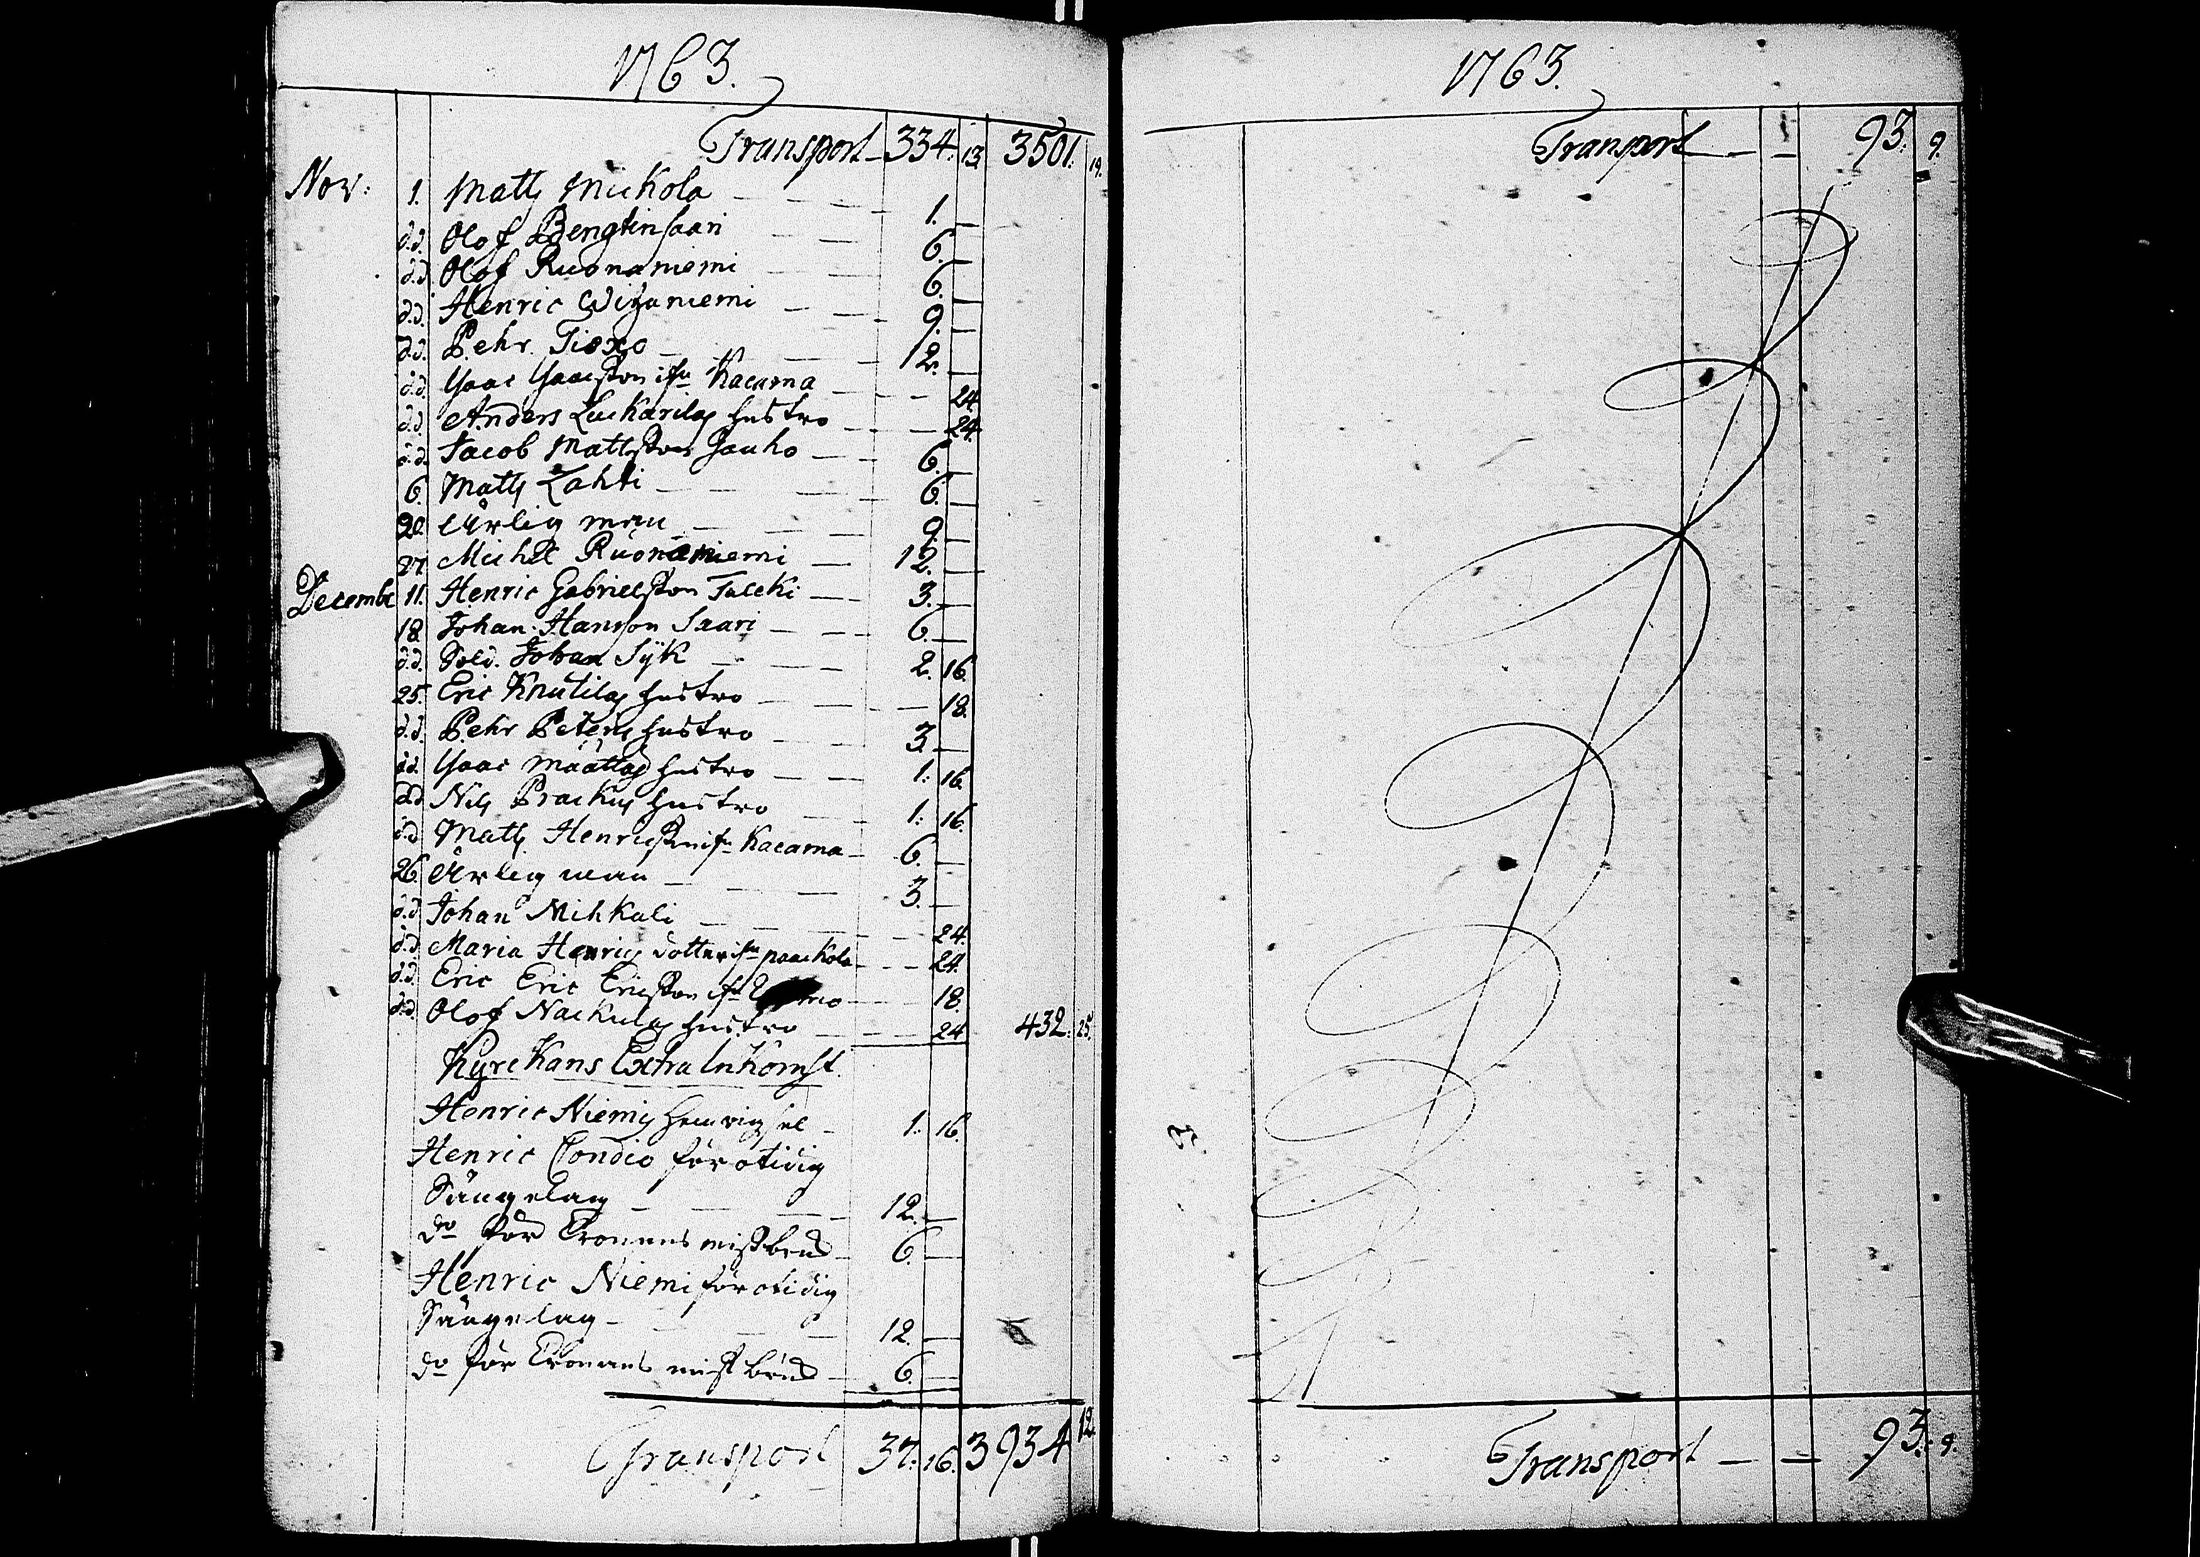 1763.
Transport 334. 13. 3501. 19.
Nov: 1. Matts Mickola 1. —
d.d. Olof Bengtinsaari 6. —
d.d. Olof Ruonaniemi 6. —
d.d. Henric Wizaniemi 9. —
d.d. Pehr Tioxo 12. —
d.d. Isaac Isaacsson ifrn Kacama 24.
d.d. Anders Luckarilas hustro 24.
d.d. Jacob Mattsson Jauho 6. —
6. Matts Lahti 6. —
20. Ärlig man 9. —
27. Michel Ruonaniemi 12. —
Decembr 11. Henric Gabrielsson Tulcki 3. —
18. Johan Hansson Saari 6. —
d.d. Sold. Johan Sÿk 2. 16.
25. Eric Knutilas hustro 18.
d.d. Pehr Peters hustro 3. —
d.d. Isaac Määttas hustro 1: 16.
d.d. Nils Prackus hustro 1: 16.
d.d. Matts Henricsson ifrn Kacama 6. —
26. Ärlig man 3. —
d.d. Johan Mihkali 24.
d.d. Maria Henrics dotter ifrn paackola 24.
d.d. Eric Eric Ericsson ifrn 18.
d.d. Olof Nackulas hustro 24 432. 25.
Kyrckans Extra Inkomst
Henric Niemis 1: 16.
Henric Condio för otidig
Sängelag 12. —
do för Cronans missbruk 6. —
Henric Niemi för otidig
Sängelag 12. —
do för Cronans missbruk 6. —
Transport 37. 16. 3934 12.
1763.
Transport — — 93. 9.
Transport — — 93. 9.